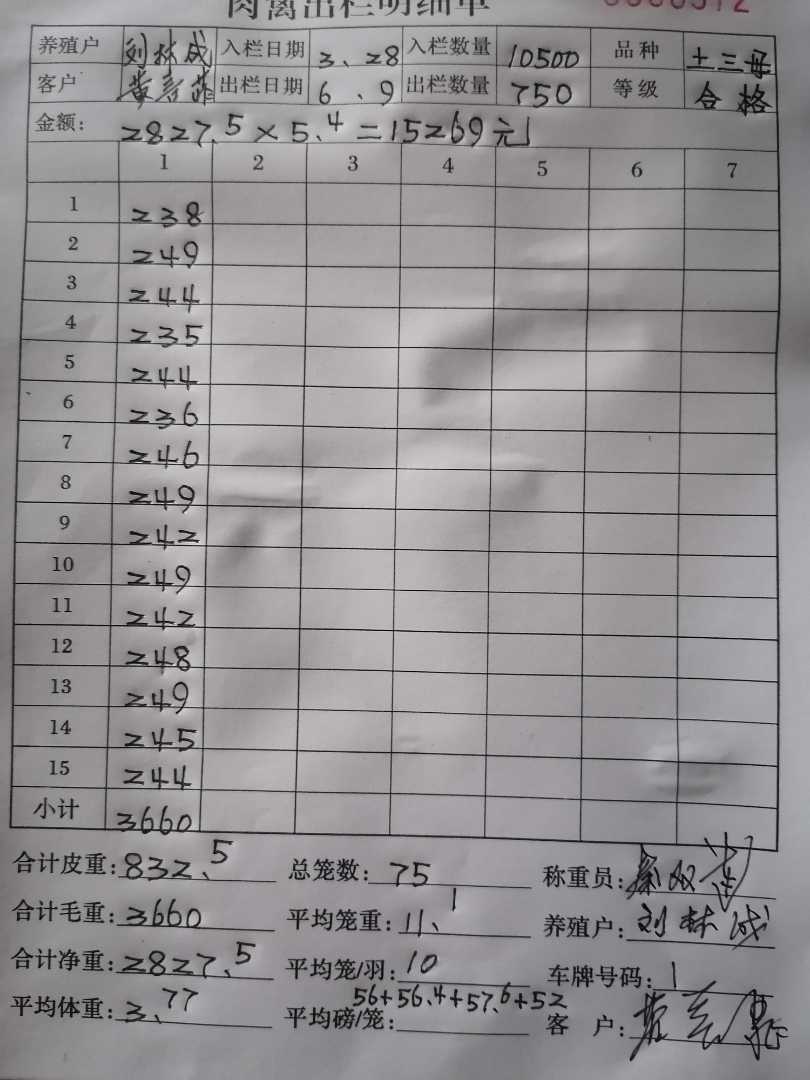 肉禽出栏明细单
养殖户 刘林成 入栏日期 3、28 入栏数量 10500 品种 土三母
客户 出栏日期 6、9 出栏数量 750 等级 合格
金额: 2827.5×5.4=15269元
1 2 3 4 5 6 7
1 238
2 249
3 244
4 235
5 244
6 236
7 246
8 249
9 242
10 249
11 242
12 248
13 249
14 245
15 244
小计 3660
合计皮重: 832.5 总笼数: 75 称重员:
合计毛重: 3660 平均笼重: 11.1 养殖户: 刘林成
合计净重: 2827.5 平均笼/羽: 10 车牌号码: 1
平均体重: 3.77 平均磅/笼: 56+56.4+57.6+52 客户: